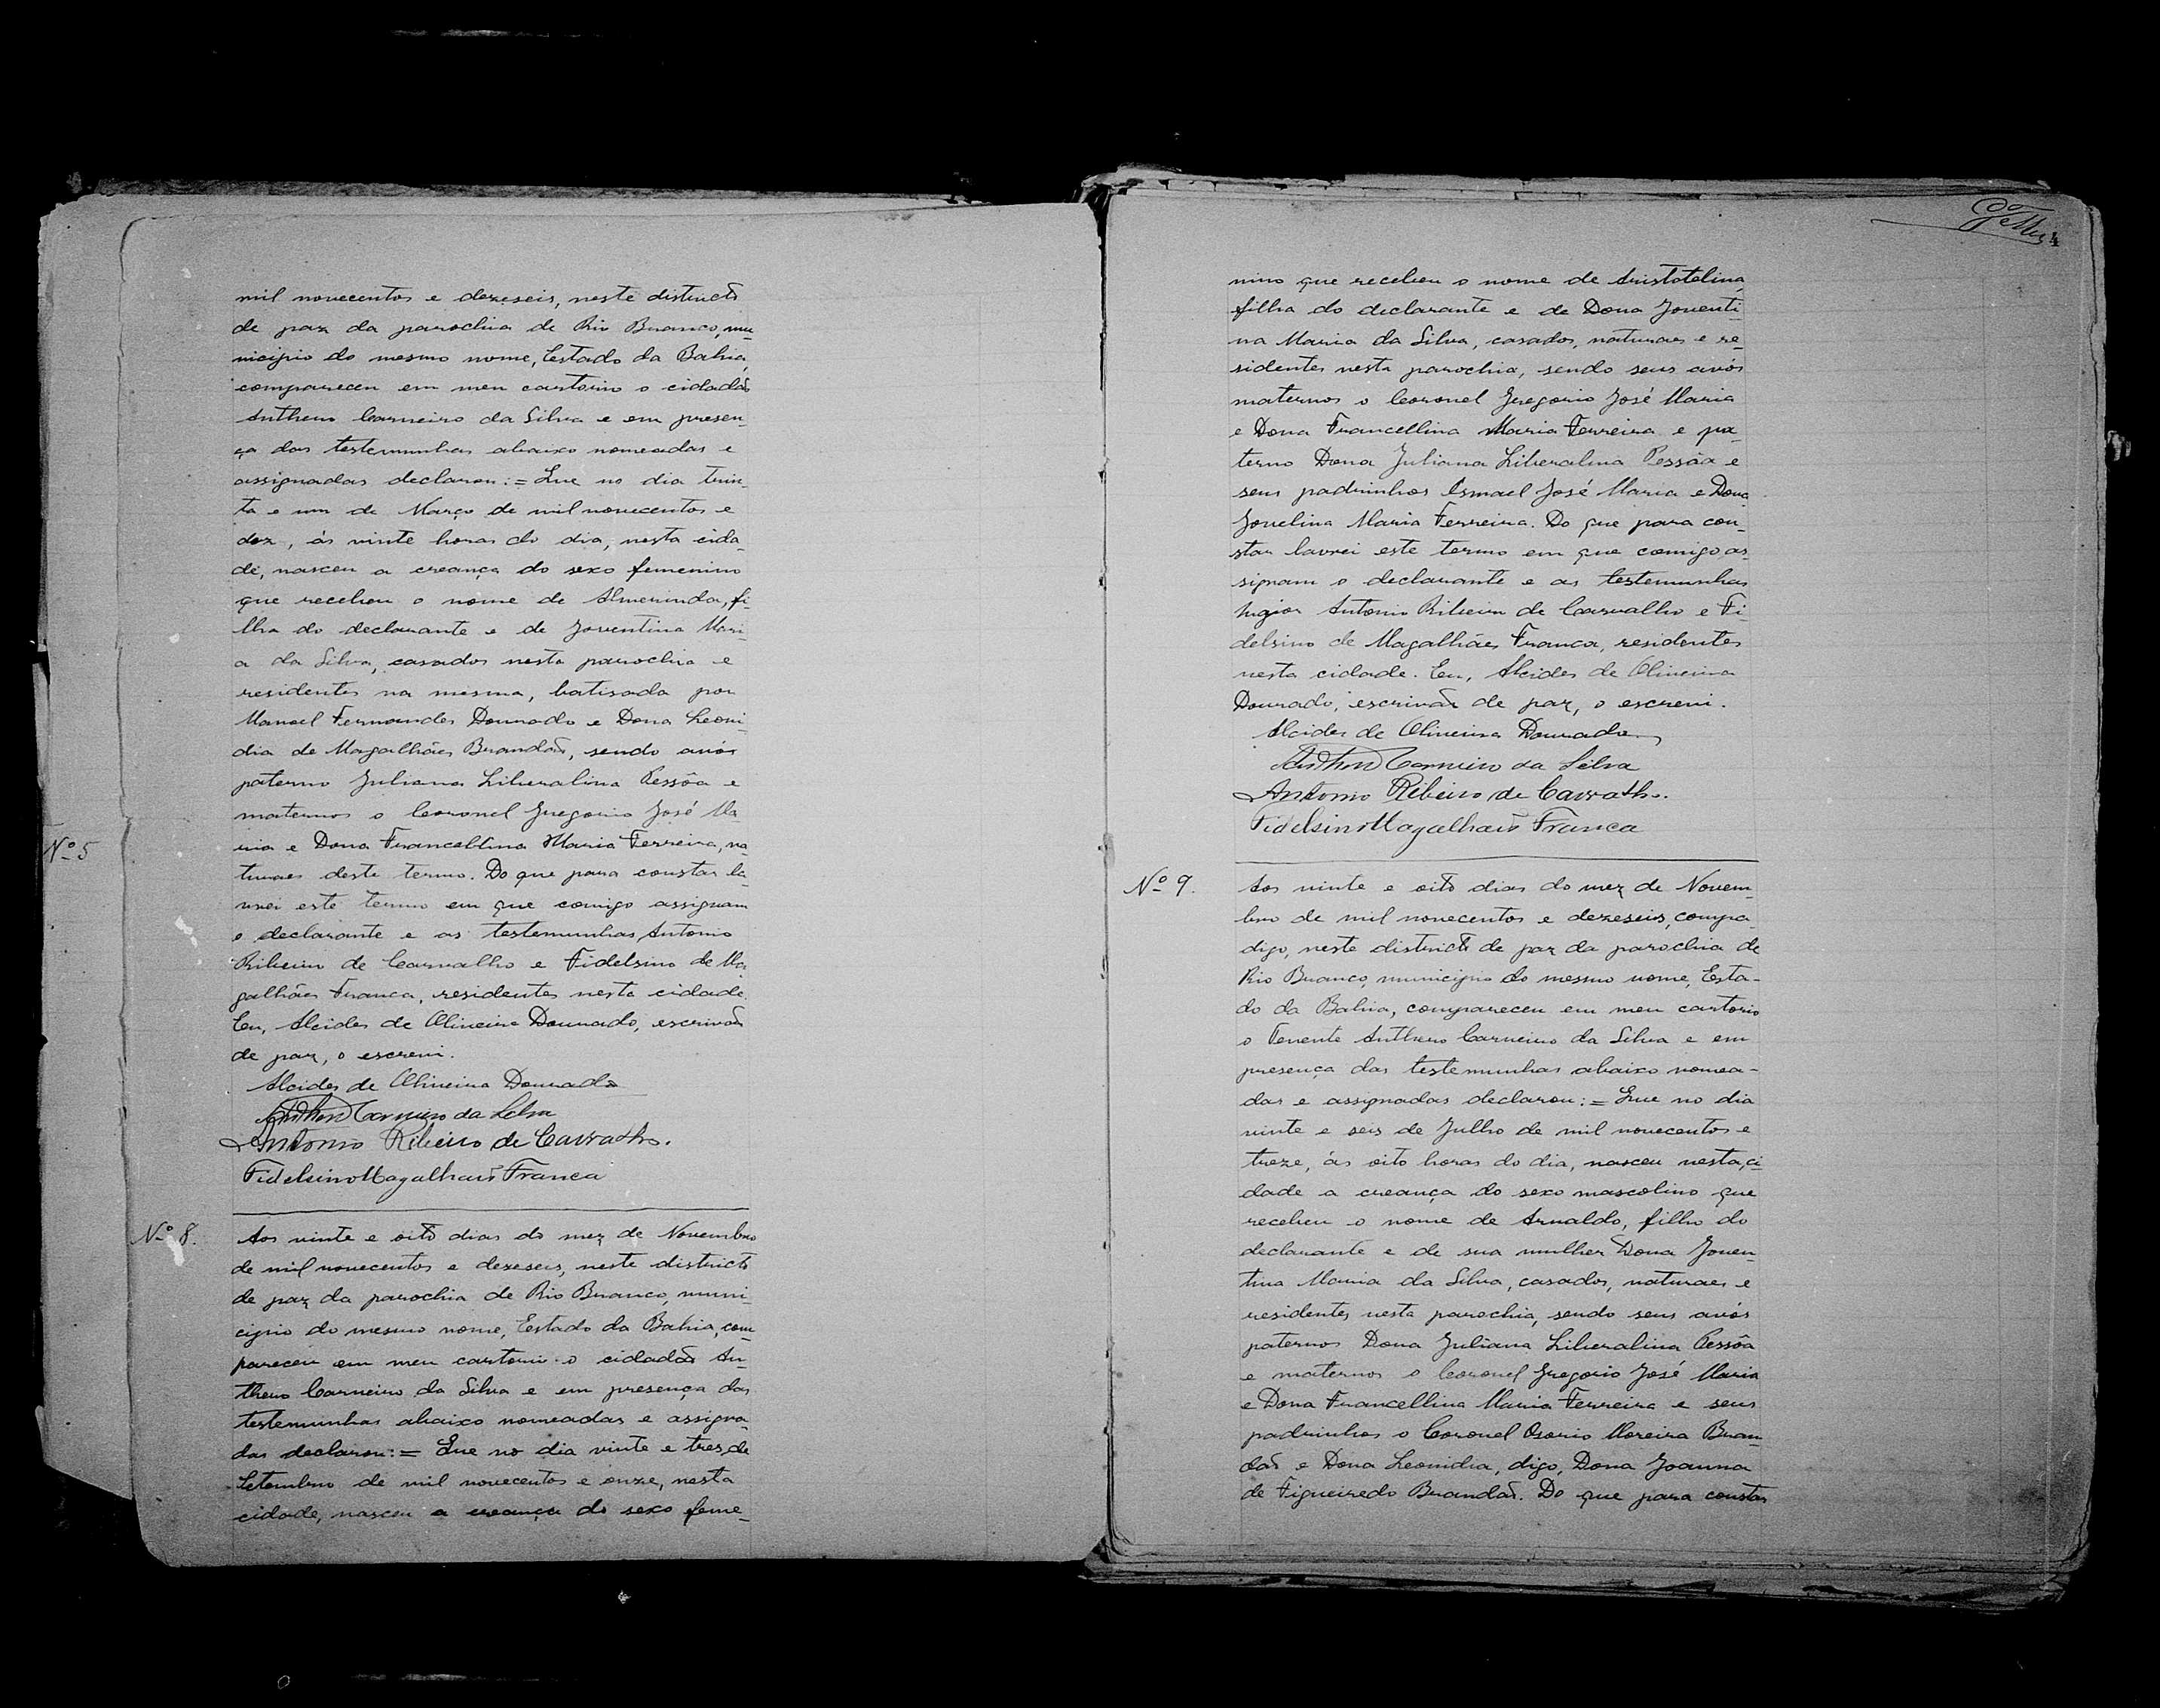 mil novecentos e dezeseis, neste districto
de paz da parochia de Rio Branco, mu-
nicipio do mesmo nome, Estado da Bahia,
compareceu em meu cartorio o cidadão
Anthero Carneiro da Silva e em presen-
ça das testemunhas abaixo nomeadas e
assignadas declarou:= Que no dia trin-
ta e um de Março de mil novecentos e
dez, ás vinte horas do dia, nesta cida-
de, nasceu a creança do sexo femenino
que recebeu o nome de Almerinda, fi-
lha do declarante e de Joventina Mari-
a da Silva, casados nesta parochia e
residentes na mesma, batisada por
Manoel Fernandes Dourado e Dona Leoni-
dia de Magalhães Brandão, sendo avós
paterno Juliana Liberalina Pessôa e
maternos o Coronel Gregorio José Ma-
ria e Dona Francellina Maria Ferreira, na-
turaes deste termo. Do que para constar la-
vrei este termo em que comigo assignam
o declarante e as testemunhas Antonio
Ribeiro de Carvalho e Fidelsino de Ma-
galhães Franca, residentes nesta cidade.
Eu, Alcides de Oliveira Dourado, escrivão
de paz, o escrevi.
Alcides de Oliveira Dourado
Anthero Carneiro da Silva
Antonio Ribeiro de Carvalho.
Fidelsino Magalhais Franca
Nº 5
Nº 8.
Aos vinte e oito dias do mez de Novembro
de mil novecentos e dezeseis, neste districto
de paz da parochia de Rio Branco, muni-
cipio do mesmo nome, Estado da Bahia, com-
pareceu em meu cartorio o cidadão An-
thero Carneiro da Silva e em presença das
testemunhas abaixo nomeadas e assigna-
das declarou:= Que no dia vinte e tres de
Setembro de mil novecentos e onze, nesta
cidade, nasceu a creança do sexo feme-
4
nino que recebeu o nome de Aristotelina,
filha do declarante e de Dona Joventi-
na Maria da Silva, casados, naturaes e re-
sidentes nesta parochia, sendo seus avós
maternos o Coronel Gregorio José Maria
e Dona Francellina Maria Ferreira e pa-
terno Dona Juliana Liberalina Pessôa e
seus padrinhos Ismael José Maria e Dona
Jovelina Maria Ferreira. Do que para con-
star lavrei este termo em que comigo as-
signam o declarante e as testemunhas
Major Antonio Ribeiro de Carvalho e Fi-
delsino de Magalhães Franca, residentes
nesta cidade. Eu, Alcides de Oliveira
Dourado, escrivão de paz, o escrevi.
Alcides de Oliveira Dourado
Anthero Carneiro da Silva
Antonio Ribeiro de Carvalho.
Fidelsino Magalhais Franca
Nº 9.
Aos vinte e oito dias do mez de Novem-
bro de mil novecentos e dezeseis, compa-
digo, neste districto de paz da parochia de
Rio Branco, municipio do mesmo nome, Esta-
do da Bahia, compareceu em meu cartorio
o Tenente Anthero Carneiro da Silva e em
presença das testemunhas abaixo nomea-
das e assignadas declarou:= Que no dia
vinte e seis de Julho de mil novecentos e
treze, ás oito horas do dia, nasceu nesta ci-
dade a creança do sexo mascolino que
recebeu o nome de Arnaldo, filho do
declarante e de sua mulher Dona Joven-
tina Maria da Silva, casados, naturaes e
residentes nesta parochia, sendo seus avós
paternos Dona Juliana Liberalina Pessôa
e maternos o Coronel Gregorio José Maria
e Dona Francellina Maria Ferreira e seus
padrinhos o Coronel Osorio Moreira Bran-
dão e Dona Leonidia, digo, Dona Joanna
de Figueiredo Brandão. Do que para constar